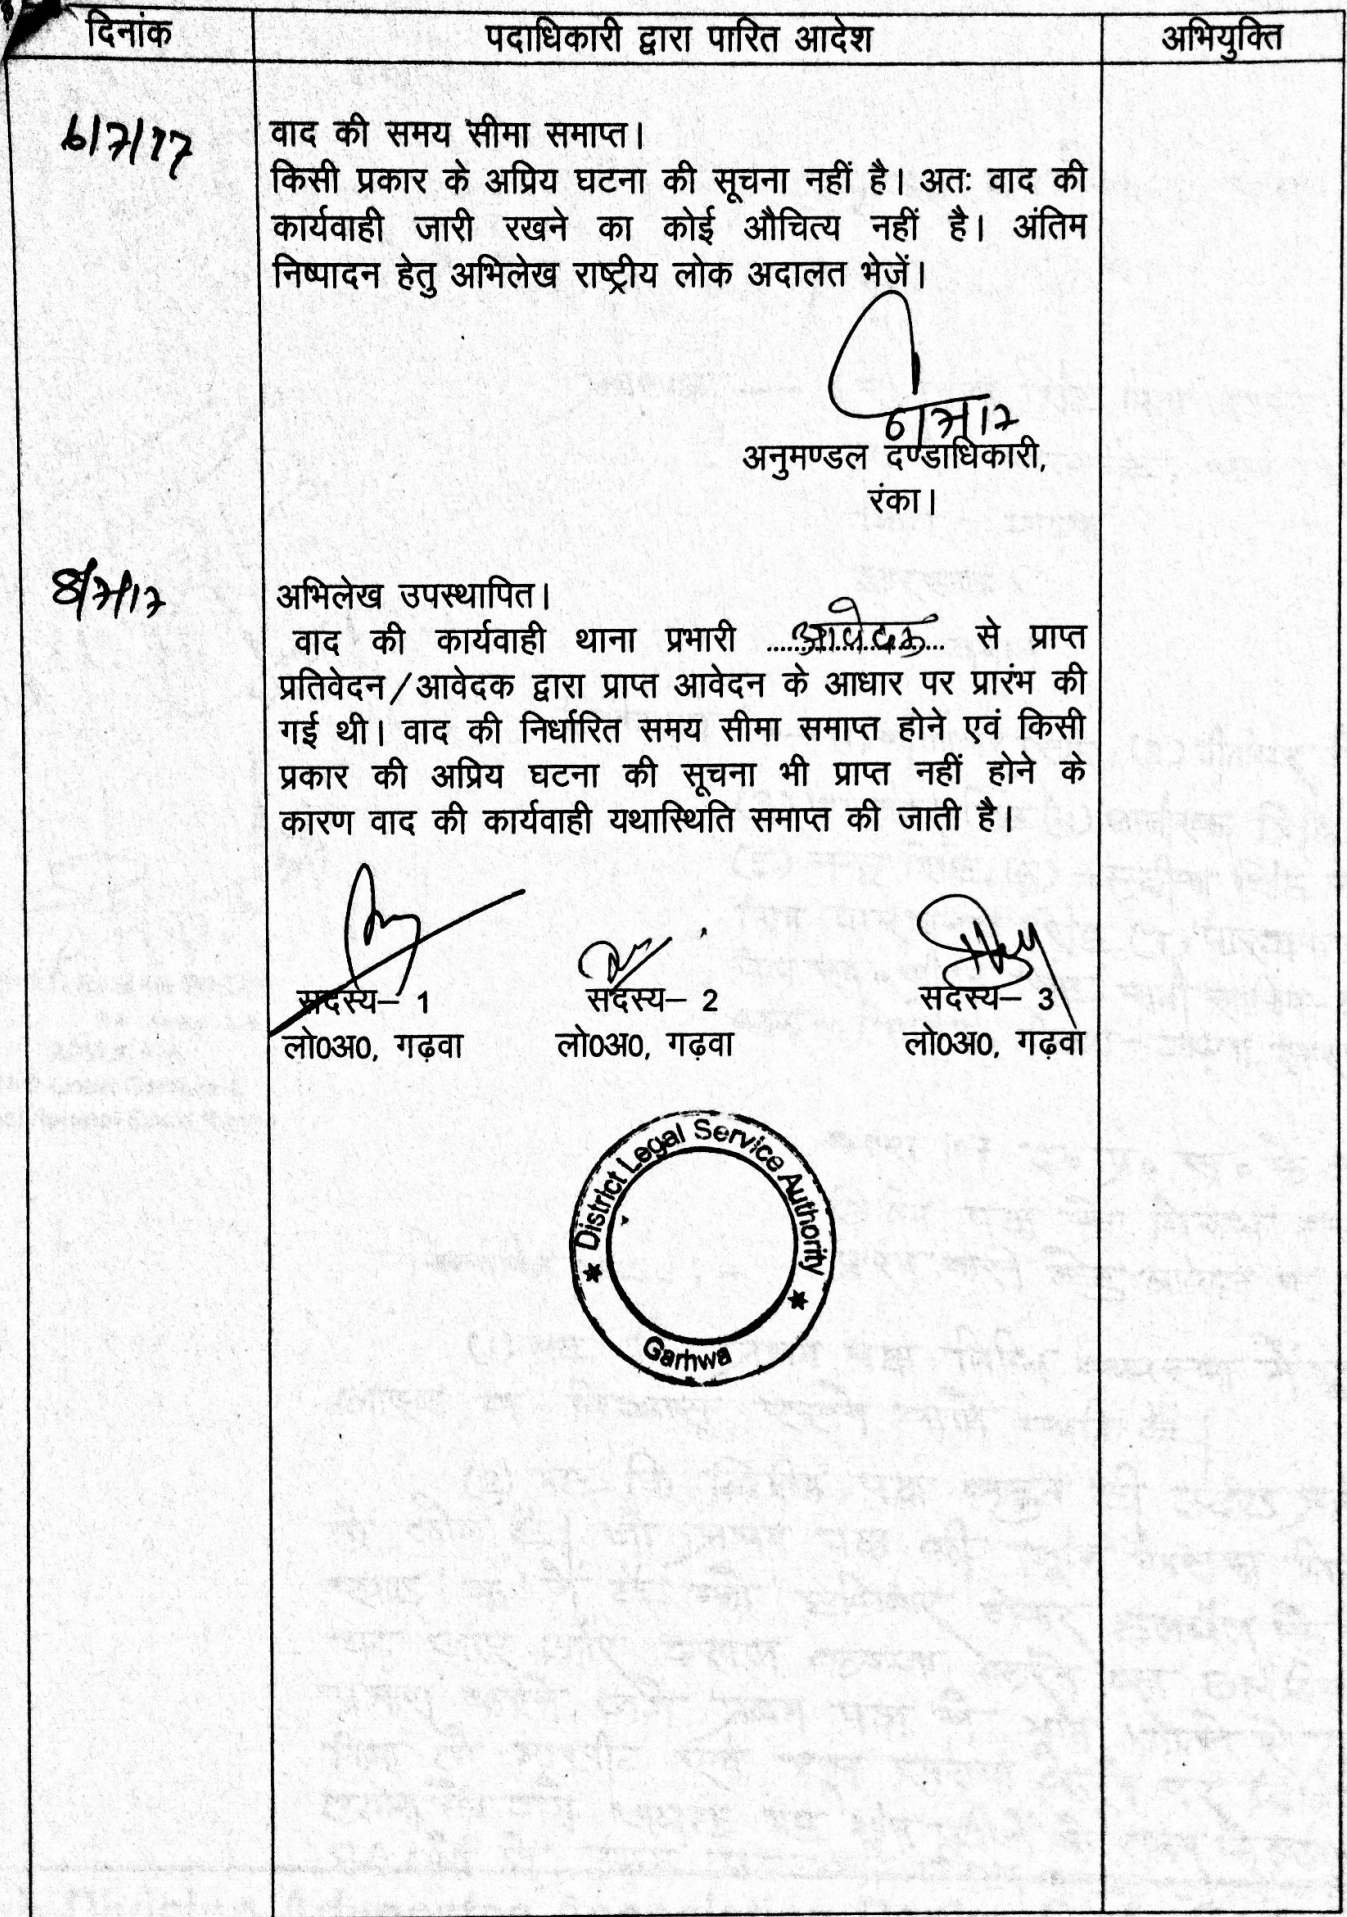 दिनांक पदाधिकारी द्वारा पारित आदेश अभियुक्ति
6/7/17 वाद की समय सीमा समाप्त।
किसी प्रकार के अप्रिय घटना की सूचना नहीं है। अतः वाद की
कार्यवाही जारी रखने का कोई औचित्य नहीं है। अंतिम
निष्पादन हेतु अभिलेख राष्ट्रीय लोक अदालत भेजें।
6/7/17
अनुमण्डल दण्डाधिकारी,
रंका।
8/7/17 अभिलेख उपस्थापित।
वाद की कार्यवाही थाना प्रभारी आवेदक से प्राप्त
प्रतिवेदन/आवेदक द्वारा प्राप्त आवेदन के आधार पर प्रारंभ की
गई थी। वाद की निर्धारित समय सीमा समाप्त होने एवं किसी
प्रकार की अप्रिय घटना की सूचना भी प्राप्त नहीं होने के
कारण वाद की कार्यवाही यथास्थिति समाप्त की जाती है।
सदस्य– 1 सदस्य– 2 सदस्य– 3
लो0अ0, गढ़वा लो0अ0, गढ़वा लो0अ0, गढ़वा
District Legal Service Authority
Garhwa